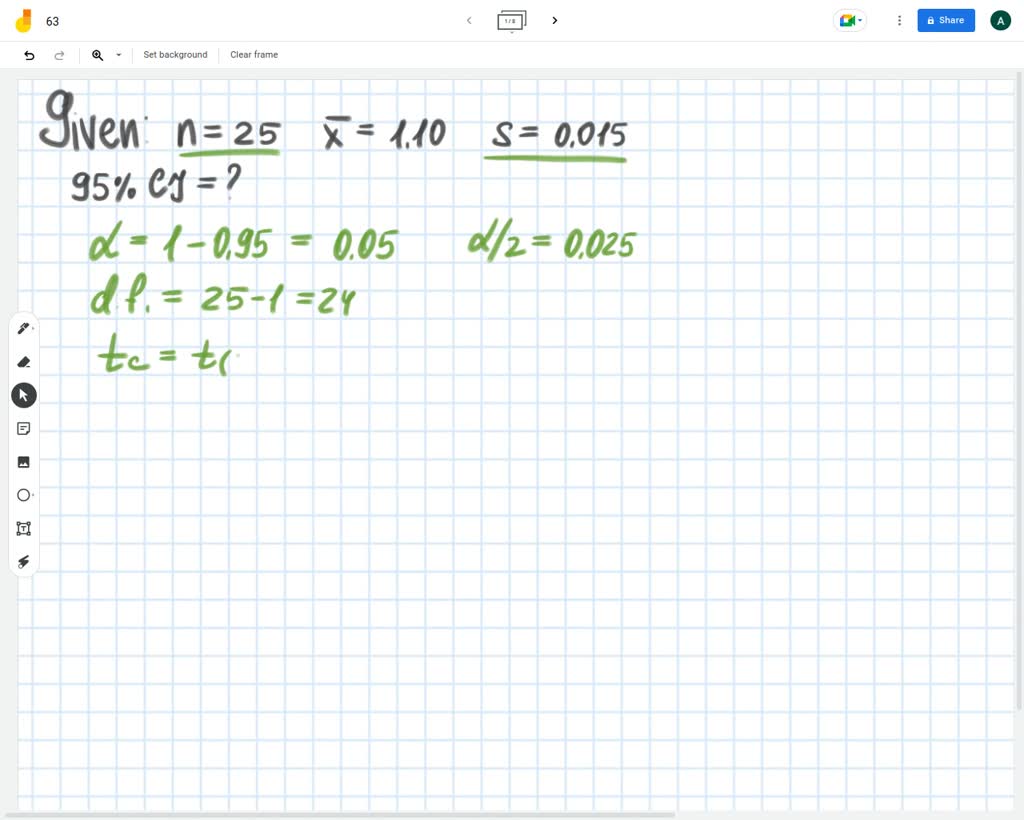 63
1 / 8
Share
A
Set background
Clear frame
Given: n = 25 x̄ = 1.10 s = 0.015
95% CJ = ?
α = 1 - 0.95 = 0.05 α/2 = 0.025
d.f. = 25 - 1 = 24
tc = t(